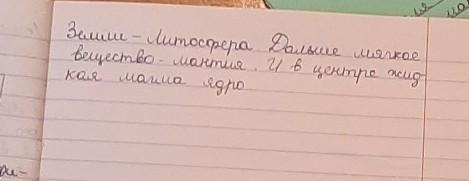 Земли - Литосфера Дальше мягкое
вещество - мантия. И в центре жид
кая магма ядро